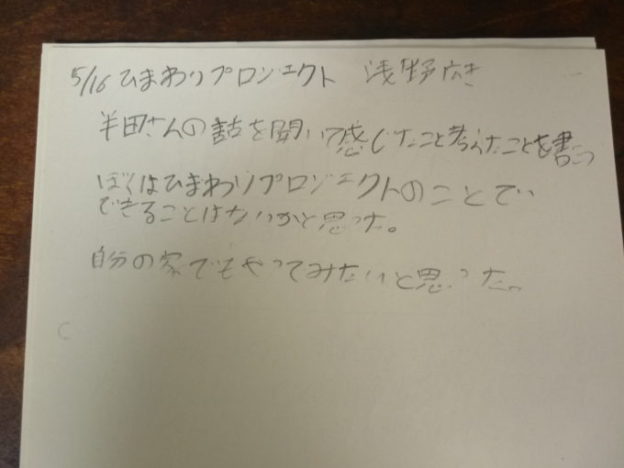 5/16 ひまわりプロジェクト 浅野広き
半田さんの話を聞いて感じたこと考えたことを書こう
ぼくはひまわりプロジェクトのことで
できることはないかと思った。
自分の家でもやってみたいと思った。